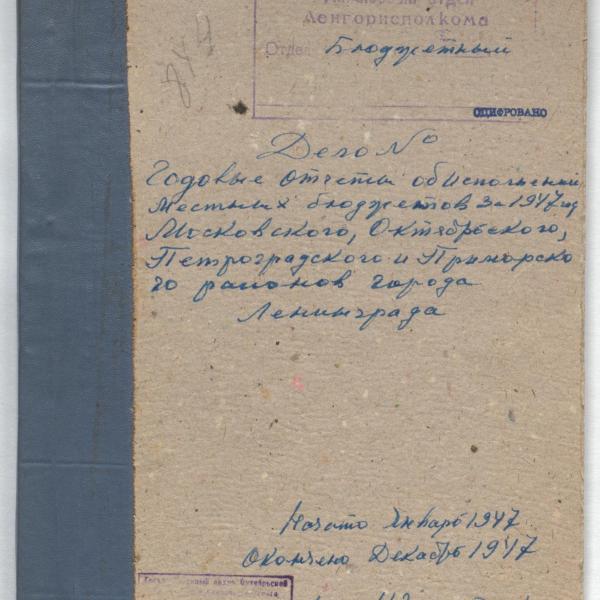 отдел
Ленгорисполкома
Отдел Бюджетный
ОЦИФРОВАНО
Дело №
Годовые отчеты об исполнении
местных бюджетов за 1947 год
Московского, Октябрьского,
Петроградского и Приморско
го районов города
Ленинграда
Начато Январь 1947
Окончено Декабрь 1947
Государственный архив Октябрьской